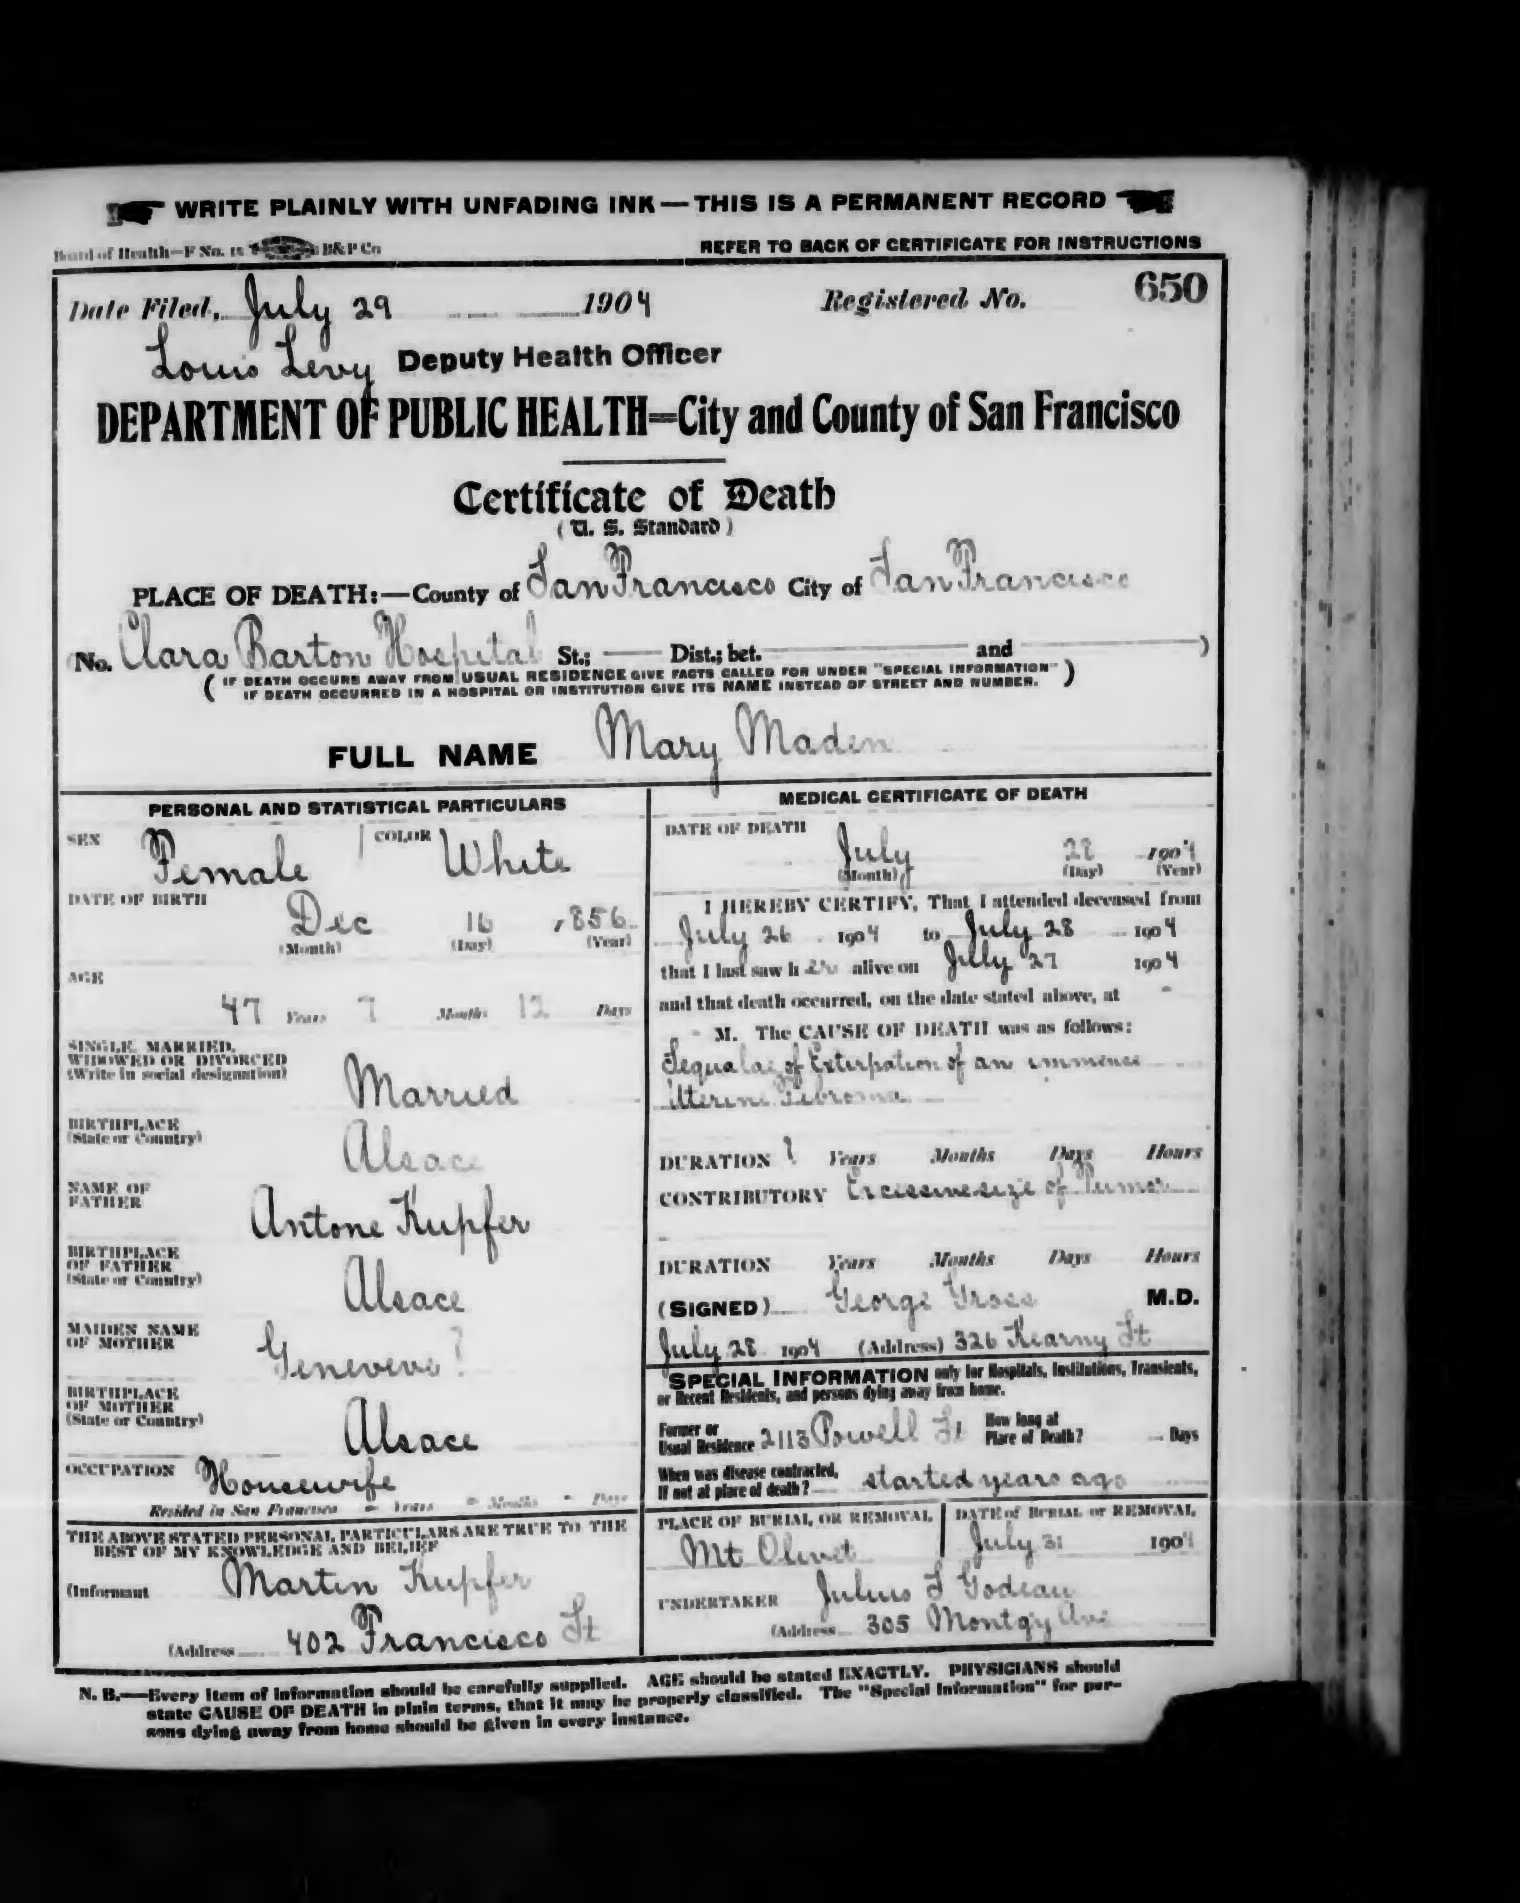 WRITE PLAINLY WITH UNFADING INK — THIS IS A PERMANENT RECORD
Board of Health—F No. 15 B&P Co
REFER TO BACK OF CERTIFICATE FOR INSTRUCTIONS
Date Filed, July 29 1904 Registered No. 650
Louis Levy Deputy Health Officer
DEPARTMENT OF PUBLIC HEALTH=City and County of San Francisco
Certificate of Death
(U. S. Standard)
PLACE OF DEATH:—County of San Francisco City of San Francisco
(No. Clara Barton Hospital St.; —— Dist.; bet. —— and ——)
(IF DEATH OCCURS AWAY FROM USUAL RESIDENCE GIVE FACTS CALLED FOR UNDER "SPECIAL INFORMATION"
IF DEATH OCCURRED IN A HOSPITAL OR INSTITUTION GIVE ITS NAME INSTEAD OF STREET AND NUMBER.)
FULL NAME Mary Maden
PERSONAL AND STATISTICAL PARTICULARS
SEX Female COLOR White
DATE OF BIRTH
Dec 16 1856
(Month) (Day) (Year)
AGE
47 Years 7 Months 12 Days
SINGLE, MARRIED,
WIDOWED OR DIVORCED
(Write in social designation)
Married
BIRTHPLACE
(State or Country)
Alsace
NAME OF
FATHER
Antone Kupfer
BIRTHPLACE
OF FATHER
(State or Country)
Alsace
MAIDEN NAME
OF MOTHER
Geneveve ?
BIRTHPLACE
OF MOTHER
(State or Country)
Alsace
OCCUPATION Housewife
Resided in San Francisco - Years - Months - Days
THE ABOVE STATED PERSONAL PARTICULARS ARE TRUE TO THE
BEST OF MY KNOWLEDGE AND BELIEF
(Informant Martin Kupfer
(Address 402 Francisco St
MEDICAL CERTIFICATE OF DEATH
DATE OF DEATH
July 28 1904
(Month) (Day) (Year)
I HEREBY CERTIFY, That I attended deceased from
July 26 1904 to July 28 1904
that I last saw her alive on July 27 1904
and that death occurred, on the date stated above, at -
- M. The CAUSE OF DEATH was as follows:
Sequalae of Exterpation of an immence
Utterine Fibroma
DURATION ? Years Months Days Hours
CONTRIBUTORY Excessive size of Tumor
DURATION Years Months Days Hours
(SIGNED) George Gross M.D.
July 28 1904 (Address) 326 Kearny St
SPECIAL INFORMATION only for Hospitals, Institutions, Transients,
or Recent Residents, and persons dying away from home.
Former or
Usual Residence 2113 Powell St
How long at
Place of Death? Days
When was disease contracted,
If not at place of death? started years ago
PLACE OF BURIAL OR REMOVAL
Mt Olivet
DATE of BURIAL or REMOVAL
July 31 1904
UNDERTAKER Julius S Godeau
(Address 305 Montgy Ave
N. B.—Every item of information should be carefully supplied. AGE should be stated EXACTLY. PHYSICIANS should
state CAUSE OF DEATH in plain terms, that it may be properly classified. The "Special Information" for per-
sons dying away from home should be given in every instance.